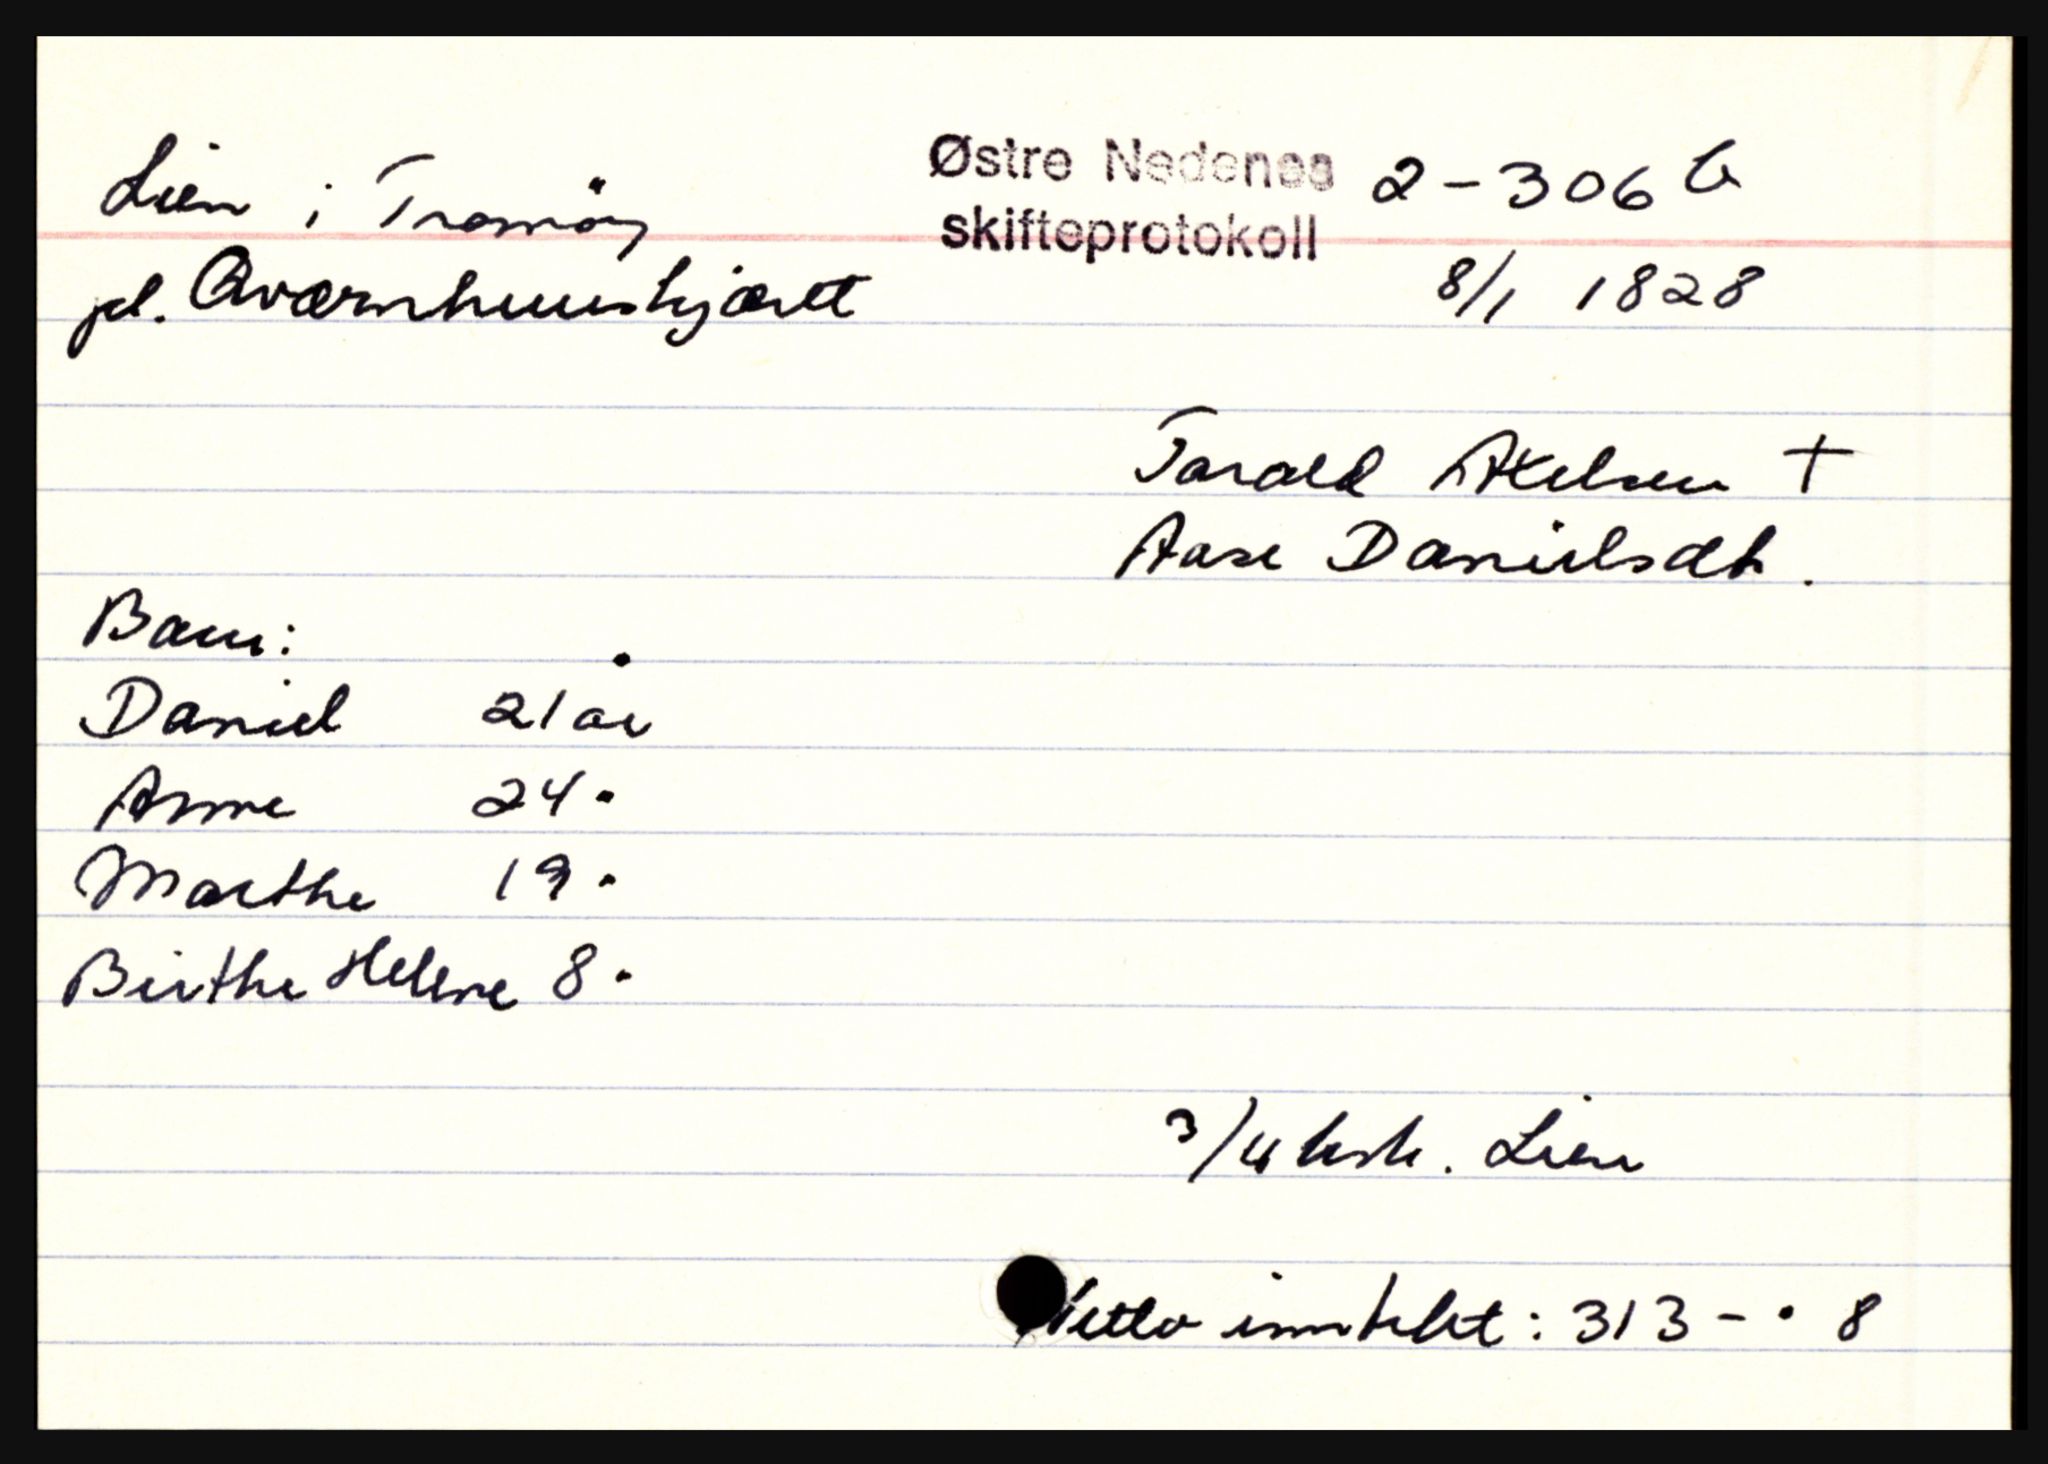 Lien i Tromöy
Østre Nedenes
skifteprotokoll
2 - 306 b
pl. Qværnhuuskjærtt
8/1 1828
Tarald Axelsen +
Aase Danielsdt.
Barn:
Daniel 21 år
Anne 24 "
Marthe 19 "
Birthe Helene 8 "
3/4 hsk. Lien
Netto inntekt: 313 - " 8